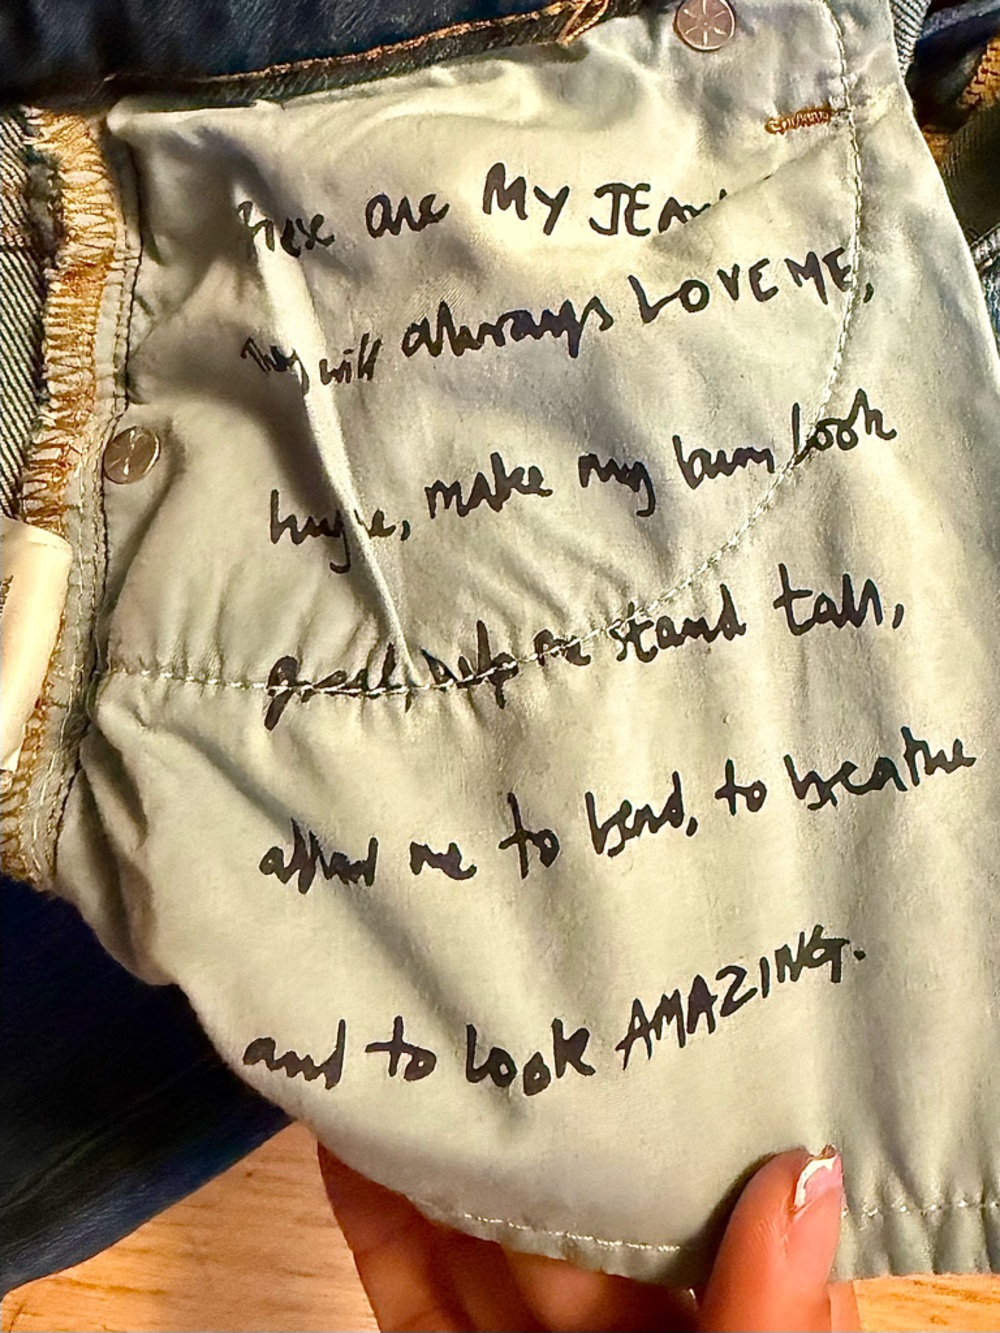 These are MY JEANS
They will always LOVE ME,
huge, make my bum look
great, help me stand tall,
allow me to bend, to breathe
and to look AMAZING.